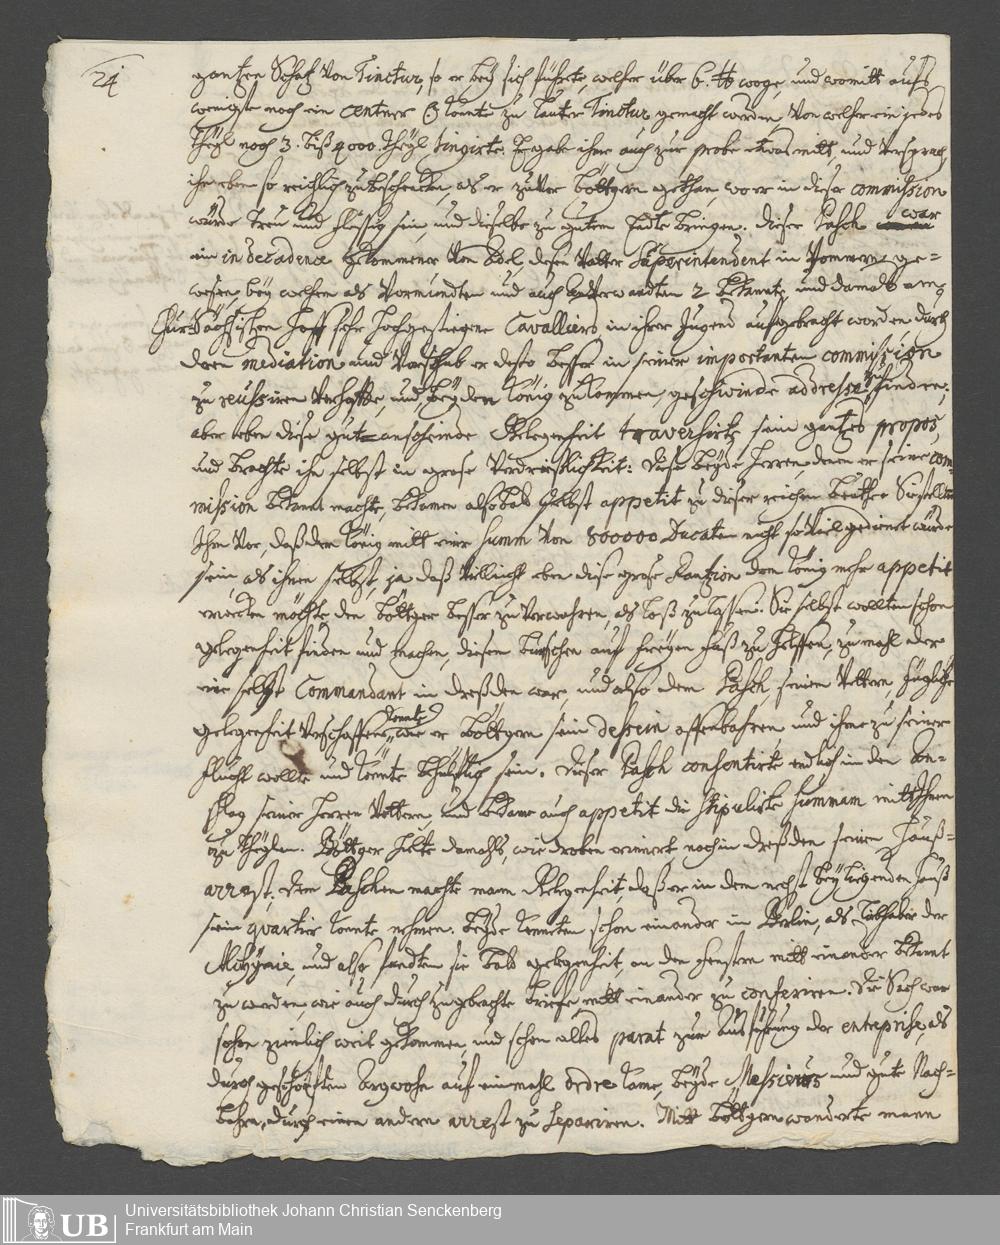 24
gantzen Schatz von Tinctur, so er beÿ sich führte, welcher über 6. ℔ woge, und womitt aufs
wenigste noch ein centner ☿ konte zu lauter Tinctur gemacht werden, von welcher ein jedes
theÿl noch 3. biß 4000. theÿl tingirte. Er gabe ihme auch zur probe etwas mitt, und versprach
ihn eben so reichlich zu beschencken, als er zuvor Böttgern gethan, wo er in dieser commission
würde treu und fleissig sein, und dieselbe zu gutem Ende bringen. Dieser Pasch war
ein in decadence gekommener von Adel, dessen Vatter Superintendent in Pommern ge=
wesen, beÿ welchem als Vormundten und auch anverwandten 2 bekannte, und damals am
Chur Sächsischen Hoff sehr hochgestiegene Cavalliers in ihrer Jugend aufgebracht worden, durch
deren mediation und Vorschub er desto besser in seiner importanten commission
zu reussiren verhoffte, und, beÿ dem König zu kommen, geschwinde addresse zu finden;
aber eben diese gut=anscheinende Gelegenheit traversirte sein gantzes propos,
und brachte ihn selbst in grose Verdriesslichkeit: diese beÿde Herren denen er seine com=
mission bekannt machte, bekamen alsobald selbst appetit zu dieser reichen beuthe. Sie stellten
Ihm vor, daß dem König mitt einer summ von 800000 Ducaten nicht so viel gedienet würde
sein, als ihnen selbst, ja daß villeicht eben diese grose Rantzion dem König mehr appetit
machen möchte, den Böttger besser zu verwahren, als loß zu lassen. Sie selbst wollten schon
gelegenheit finden und machen, diesem burschen auf freÿen fuß zu helffen, zumahl der
eine selbst Commandant in Dreßden war, und also dem Pasch, seinem Vettern, fügliche
gelegenheit verschaffen konte, wie er Böttgern sein dessein offenbahren und ihme zu seiner
flucht wollte und könte behülflich sein. Dieser Pasch consentirte endlich in den Vor=
schlag seiner Herren Vettern, und bekame auch appetit die stipulirte summam mitt Ihnen
zu theÿlen. Böttger hielte damahls, wie droben erinnert noch in Dreßden seinen Hauß=
arrest. Dem Paschen machte mann Gelegenheit, daß er in dem nechst beÿ liegenden Hauß
sein quartier konte nehmen. Beÿde kenneten schon einander in Berlin, als liebhaber der
Alchÿmie, und also fandten sie bald gelegenheit, an den fenstern mitt einander bekannt
zu werden, wie auch durch zugebrachte briefe mitt einander zu conferiren. Die Sach war
schon ziemlich weit gekommen, und schon alles parat zur ausführung der entreprise, als
durch geschöpften Argwohn auf einmahl ordre kame, beÿde Messieurs und gute Nach=
bahrn, durch einen andern arrest zu separiren. Mitt Böttgern wanderte mann
UB
Universitätsbibliothek Johann Christian Senckenberg
Frankfurt am Main